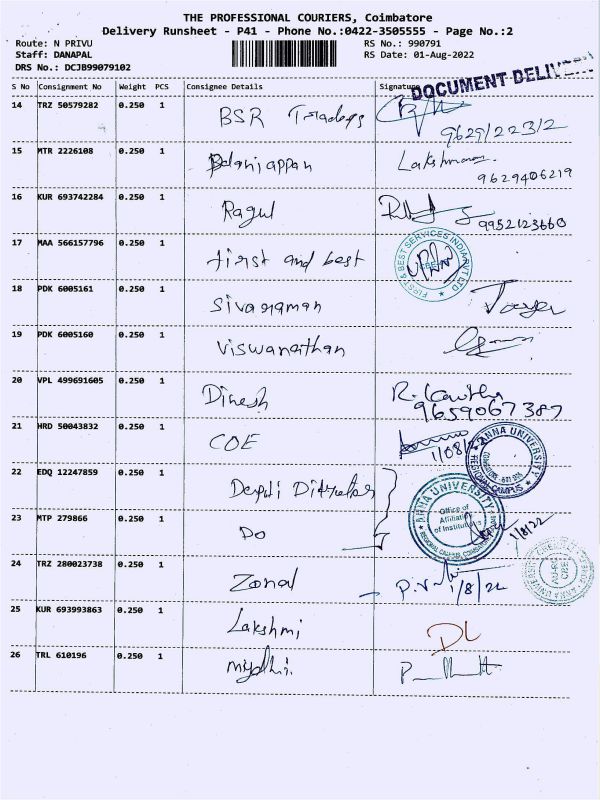 THE PROFESSIONAL COURIERS, Coimbatore
Delivery Runsheet - P41 - Phone No.:0422-3505555 - Page No.:2
Route: N PRIVU
RS No.: 990791
Staff: DANAPAL
RS Date: 01-Aug-2022
DRS No.: DCJB99079102
DOCUMENT
S No Consignment No Weight PCS Consignee Details Signature
14 TRZ 50579282 0.250 1 BSR Traders
15 MTR 2226108 0.250 1 Balanjappan Lakshmanan
9629406219
16 KUR 693742284 0.250 1 Ragul 9952123660
17 MAA 566157796 0.250 1 first and best
FIRST & BEST SERVICES INDIA PVT LTD
18 PDK 6005161 0.250 1 Sivaraman
19 PDK 6005160 0.250 1 Viswanathan
20 VPL 499691605 0.250 1 Dinesh R. Kavitha
9659067387
21 HRD 50043832 0.250 1 COE 1/08/
ANNA UNIVERSITY
REGIONAL CAMPUS
22 EDQ 12247859 0.250 1
ANNA UNIVERSITY
Office of
Affiliation
of Institutions
23 MTP 279866 0.250 1 Do 1/8/22
24 TRZ 280023738 0.250 1 Zonal 1/8/22
25 KUR 693993863 0.250 1 Lakshmi DL
26 TRL 610196 0.250 1